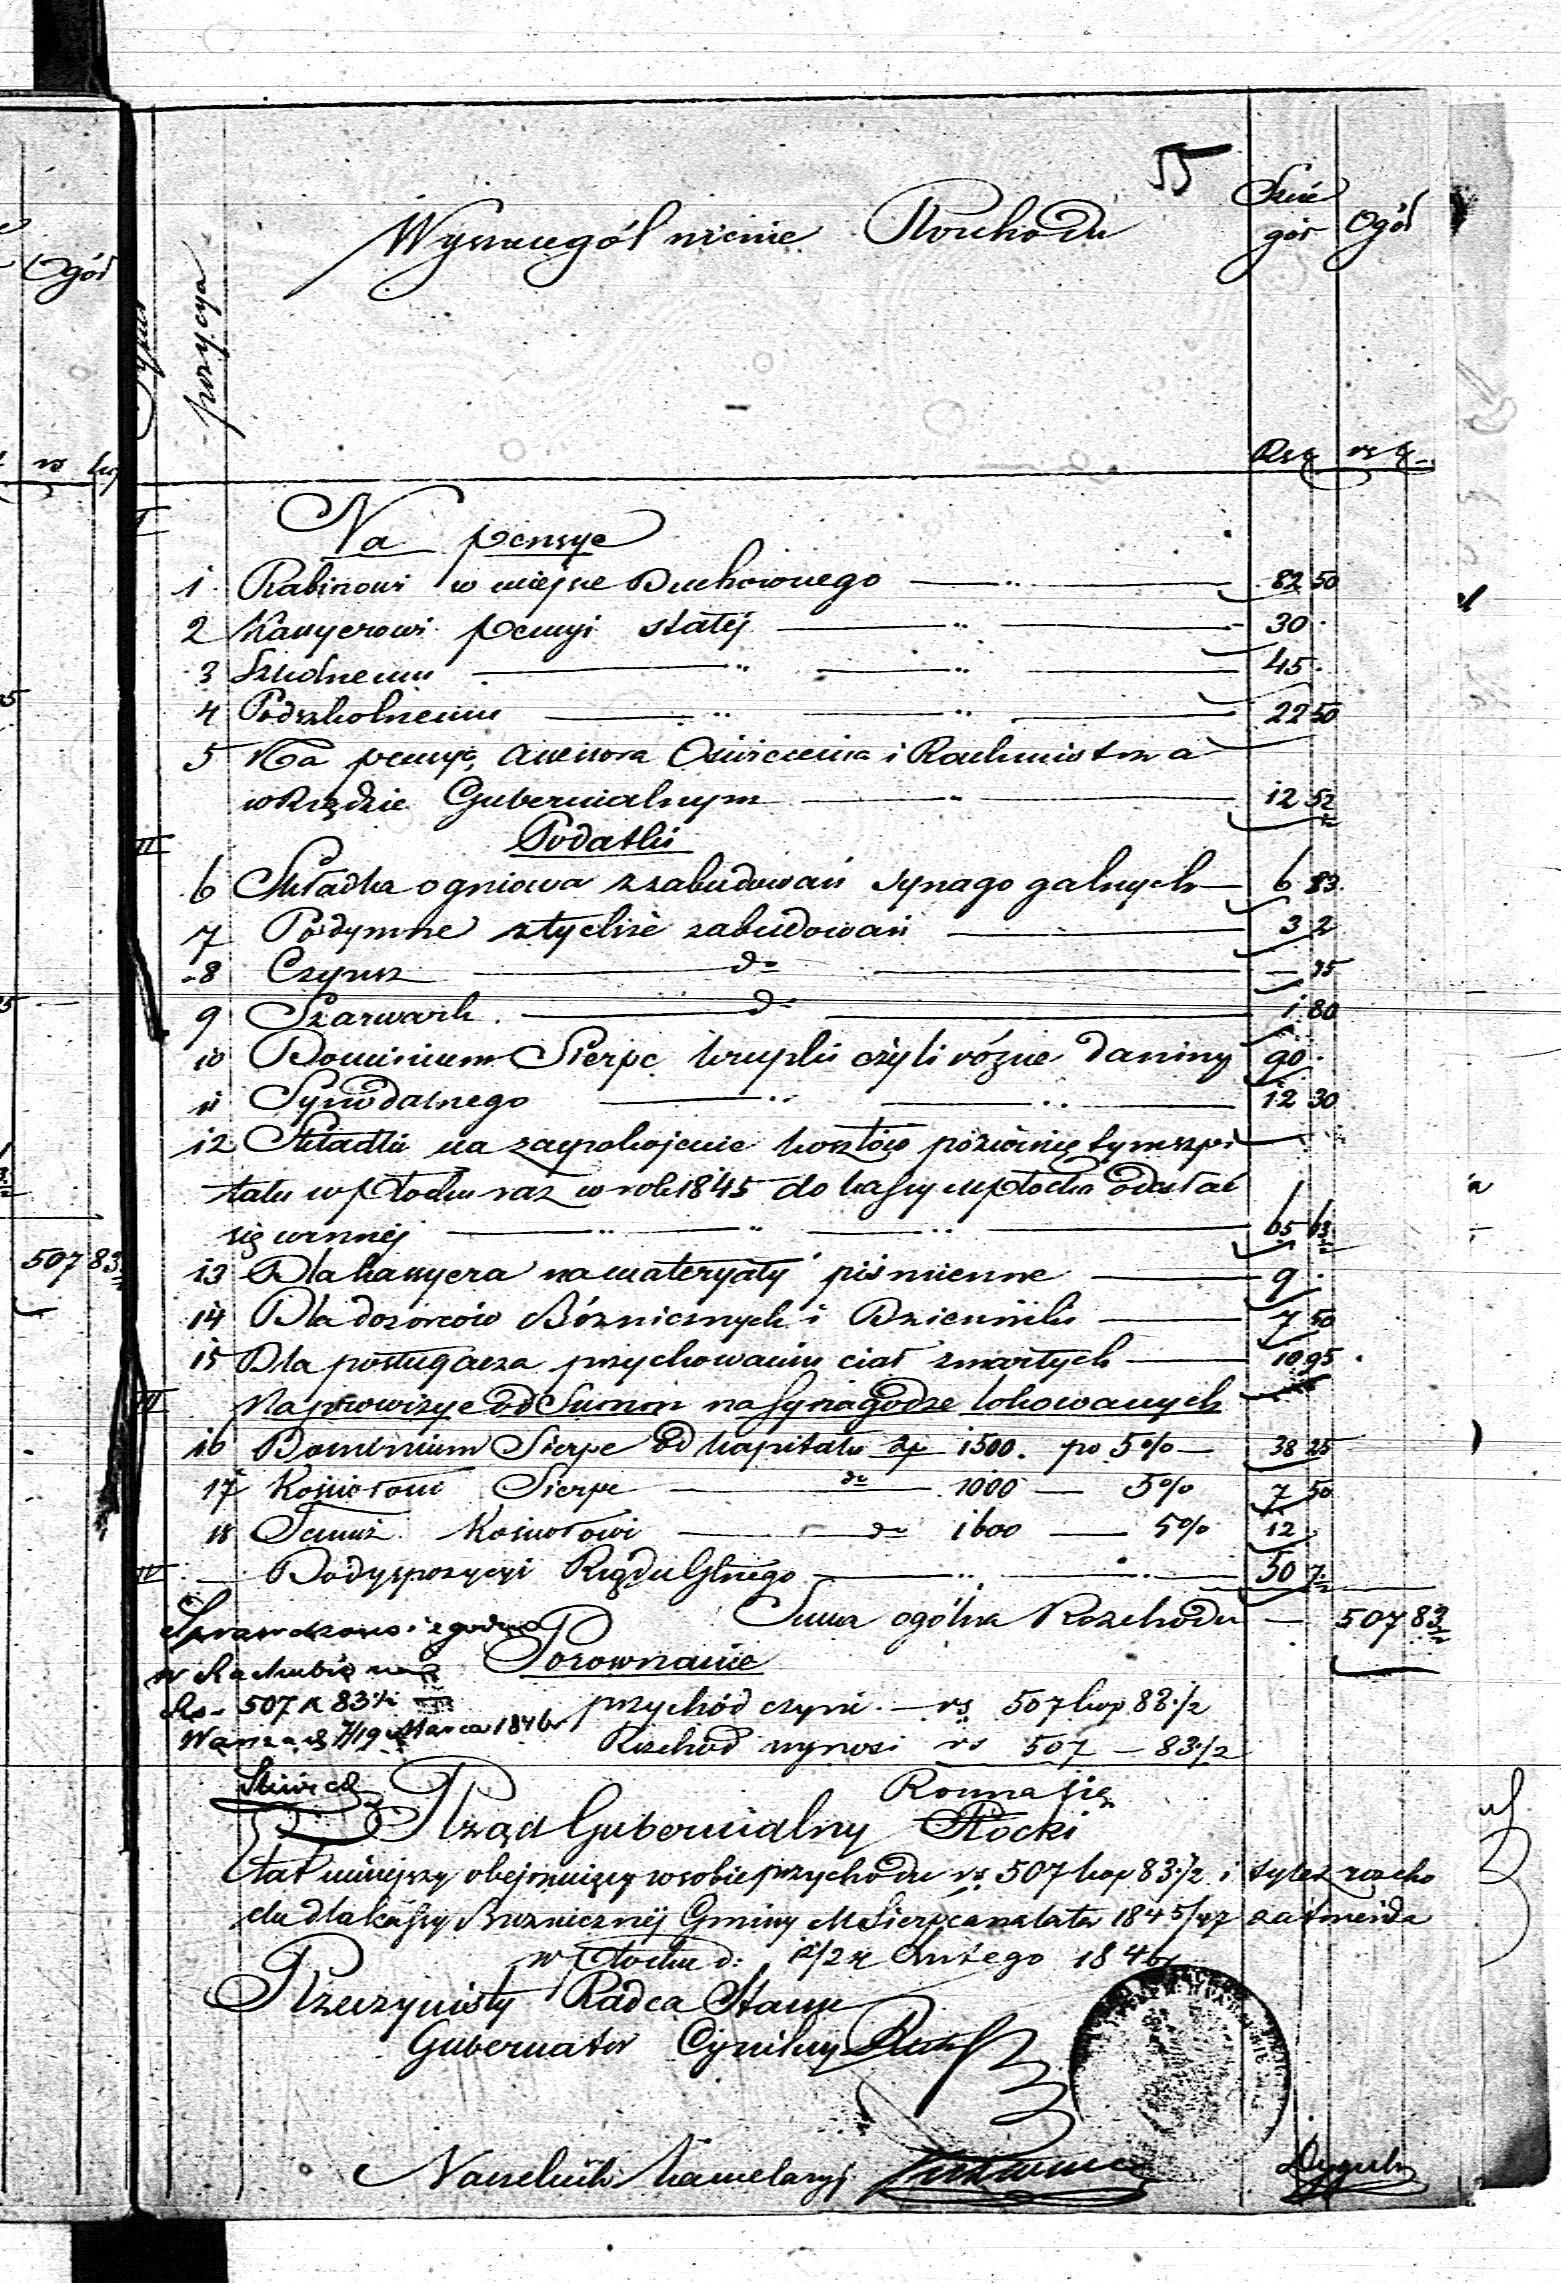 55
Wyszczególnienie Rozchodu
Szcze
gół
Ogół
Ogół
pozycya
Rs k
rs k
I
Na pensye
1 Rabinowi w miejsce Duchownego 82 50
2 Kassyerowi pensyi stałej 30
3 Szkolnemu 45
4 Podszkolnemu 22 50
5 Na pensyę Assessora Oświecenia i Rachmistrza
w Rządzie Gubernialnym 12 52
II
Podatki
6 Składka ogniowa z zabudowań synagogalnych 6 83
7 Podymne z tychże zabudowań 3 2
8 Czynsz do
9 Szarwark do 1 80
10 Dominium Sierpc krupki czyli różne daniny 90
11 Synodalnego 12 30
12 Składki na zaspokojenie kosztów
w Płocku raz w rok 1845 do kassy M Płocka odesłać
się winnej 65 63
13 Dla kassyera na materyały piśmienne 9
14 Dla dozorców Bóżnicznych i Dzienniki 7 50
15 Dla posługacza przy chowaniu ciał zmarłych 10 95
III
Na prowizye od Summ na Synagodze lokowanych
16 Dominium Sierpc od kapitału zp 1500. po 5% 38 25
17 Kościołowi Sierpc do 1000 5% 7 50
18 Temuż Kościołowi do 1600 5% 12
IV
Do dyspozycyi Rządu Glnego 50 7
Summa ogólna Rozchodu 507 83
507 83
Sprawdzono i zgodno
w Rachubie
Rs 507 k 83½
Warszawa d 7/19 Marca 1846
Porownanie
przychód czyni rs 507 kop 83 ½
Rozchod wynosi rs 507 - 83 ½
Rowna się
Rząd Gubernialny Płocki
Etat niniejszy obejmujący w sobie przychodu rs 507 kop 83 ½ i tyleż rozcho
du dla kassy Bużnicznej Gminy M Sierpca na lata 1845/47 zatwierdza
w Płocku d: 12/24 Lutego 1846
Rzeczywisty Radca Stanu
Gubernator Cywilny
Naczelnik Kancelaryi